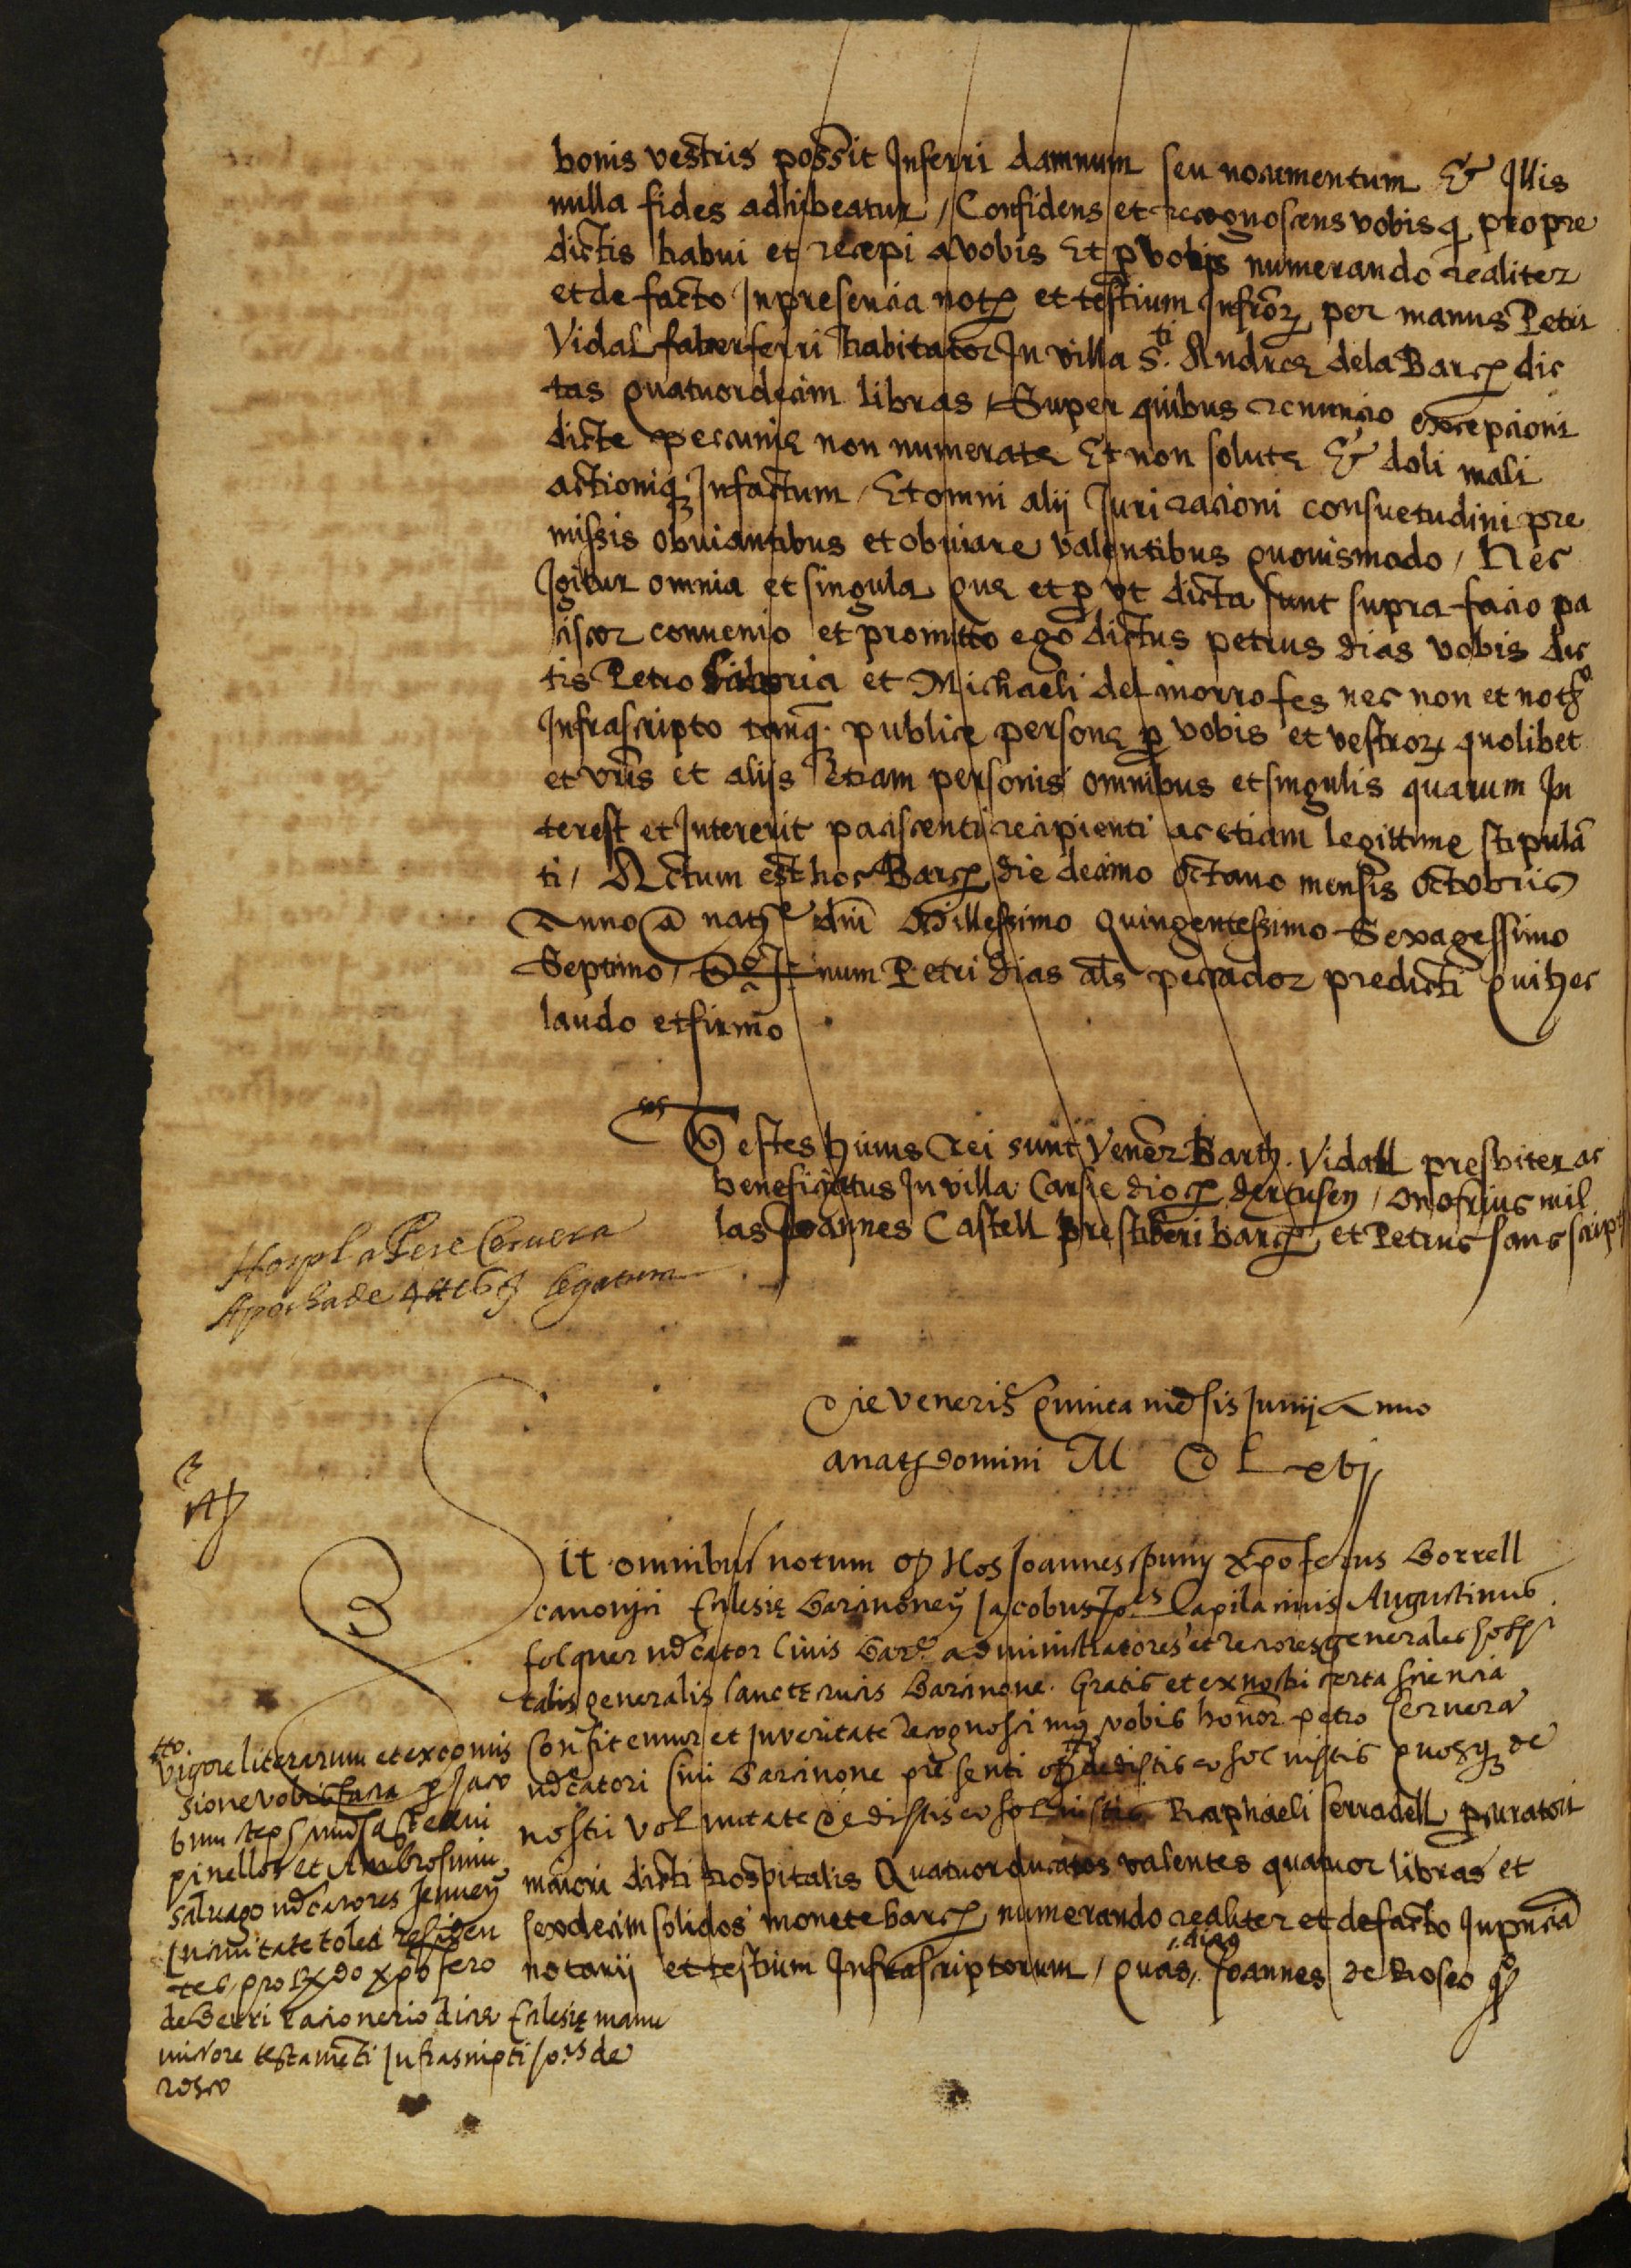 bonis vestris possit Inferri damnum seu nocumentum Et Illis
nulla fides adhibeatur / Confidens et recognoscens vobis q̃ pro pre
dictis habui et recepi a vobis Et p vobis numerando realiter
et de facto In presencia notͣ et testium Infrõꝝ per manus Petri
Vidal faber ferri habitator In villa S.ti Andreę dela Barcͣ dic
tas quatuordecim libras / Super quibus renuncio excepcioni
dicte pecunię non numeratę Et non solutę Et doli mali
actioniqꝫ Infactum / Et omni alij Juri racioni consuetudini pre
missis obviantibus et obviare valentibus quovismodo / Hec
Igitur omnia et singula quę et p ut dicta sunt supra facio pa
ciscor convenio et promitto ego dictus petrus dias vobis dic
tis Petro et Michaeli del morro fes nec non et notͦ
Infrascripto tanq̃. publicę personę p vobis et vestroꝝ quolibet
et vr̃is et aliis etiam personis omnibus et singulis quarum In
terest et Intererit paciscenti recipienti ac etiam legittime stipulã
ti / Actum est hoc Barcͣ die decimo octavo mensis octobris
Anno a natͤ dñi Millessimo quingentessimo Sexagessimo
Septimo / num Petri dias als pescador predicti qui hec
laudo et firmo
Testes huius rei sunt Vener̃ Barthͬ. Vidall presbiter ac
beneficiatus In villa Carsie dioc̃ dertusen̄ / onofrius mil
las Joannes Castell prestiberi barcͣ et Petrus sans script
Hospl a Pere Cervera
Apocha de legatum
Die veneris quinta mẽsis Junij Anno
a natͤ domini M D Lxvij
Sit omnibus notum qͩ Nos Joannes spuny xp̃oforus Borrell
canonici Eclesię barcinoneñ Jacobus Jo.es Capila civis Augustinus
folquer mẽcator Civis Barͤ administratores et rectores generales hospi
talis generalis sancte crucis Barcinone. Gratis et ex nostri certa sciencia
Confitemur et In veritate recognoscimꝰ vobis honor. petro Cervera
mẽcatori Civi Barcinone presenti qͩ dedistis et solvistis nosqꝫ de
nostri voluntate dedistis et solvistis Raphaeli serradell p̃curatori
maiori dicti hospitalis Quatuor ducatos valentes quatuor libras et
sexdecim solidos monete barcͣ numerando realiter et de facto In pñcia
notarij et testium Infrascriptorum / quas, Joannes de Roseo qͦ
Vigore literarum et ex comis
sione vobis facta p Jaco
bum
pinellos et Ambrosium
salvago mẽcatores Jenueñ
In civitate toled residen
tes, pro Rx.do xp̃ofero
de berri racionerio dictę Eclesię manu
missore testamẽti Infrascripti Jo.is de
roseo